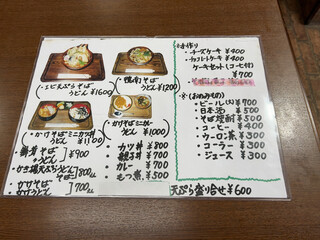 ・えび天ぷらそば
うどん ¥1600
・鴨南そば
うどん ¥1200
・かけそばミニカツ丼
うどん ¥1100
・かけそばミニカレー
うどん ¥1000
そば
うどん ] ¥900
かき揚天ぷらうどん
そば ] 800
かけそば
かけうどん ] 700
・カツ丼 ¥800
・親子丼 ¥700
・カレー ¥700
・もつ煮 ¥500
手作り
・チーズケーキ ¥400
・チョコレートケーキ ¥400
ケーキセット(コーヒ付)
¥700
※(おのみもの)
・ビール(大) ¥700
・日本酒 ¥500
・そば焼酎 ¥500
・コーヒー ¥400
・ウーロン茶 ¥300
・コーラー ¥300
・ジュース ¥300
天ぷら盛り合せ ¥600